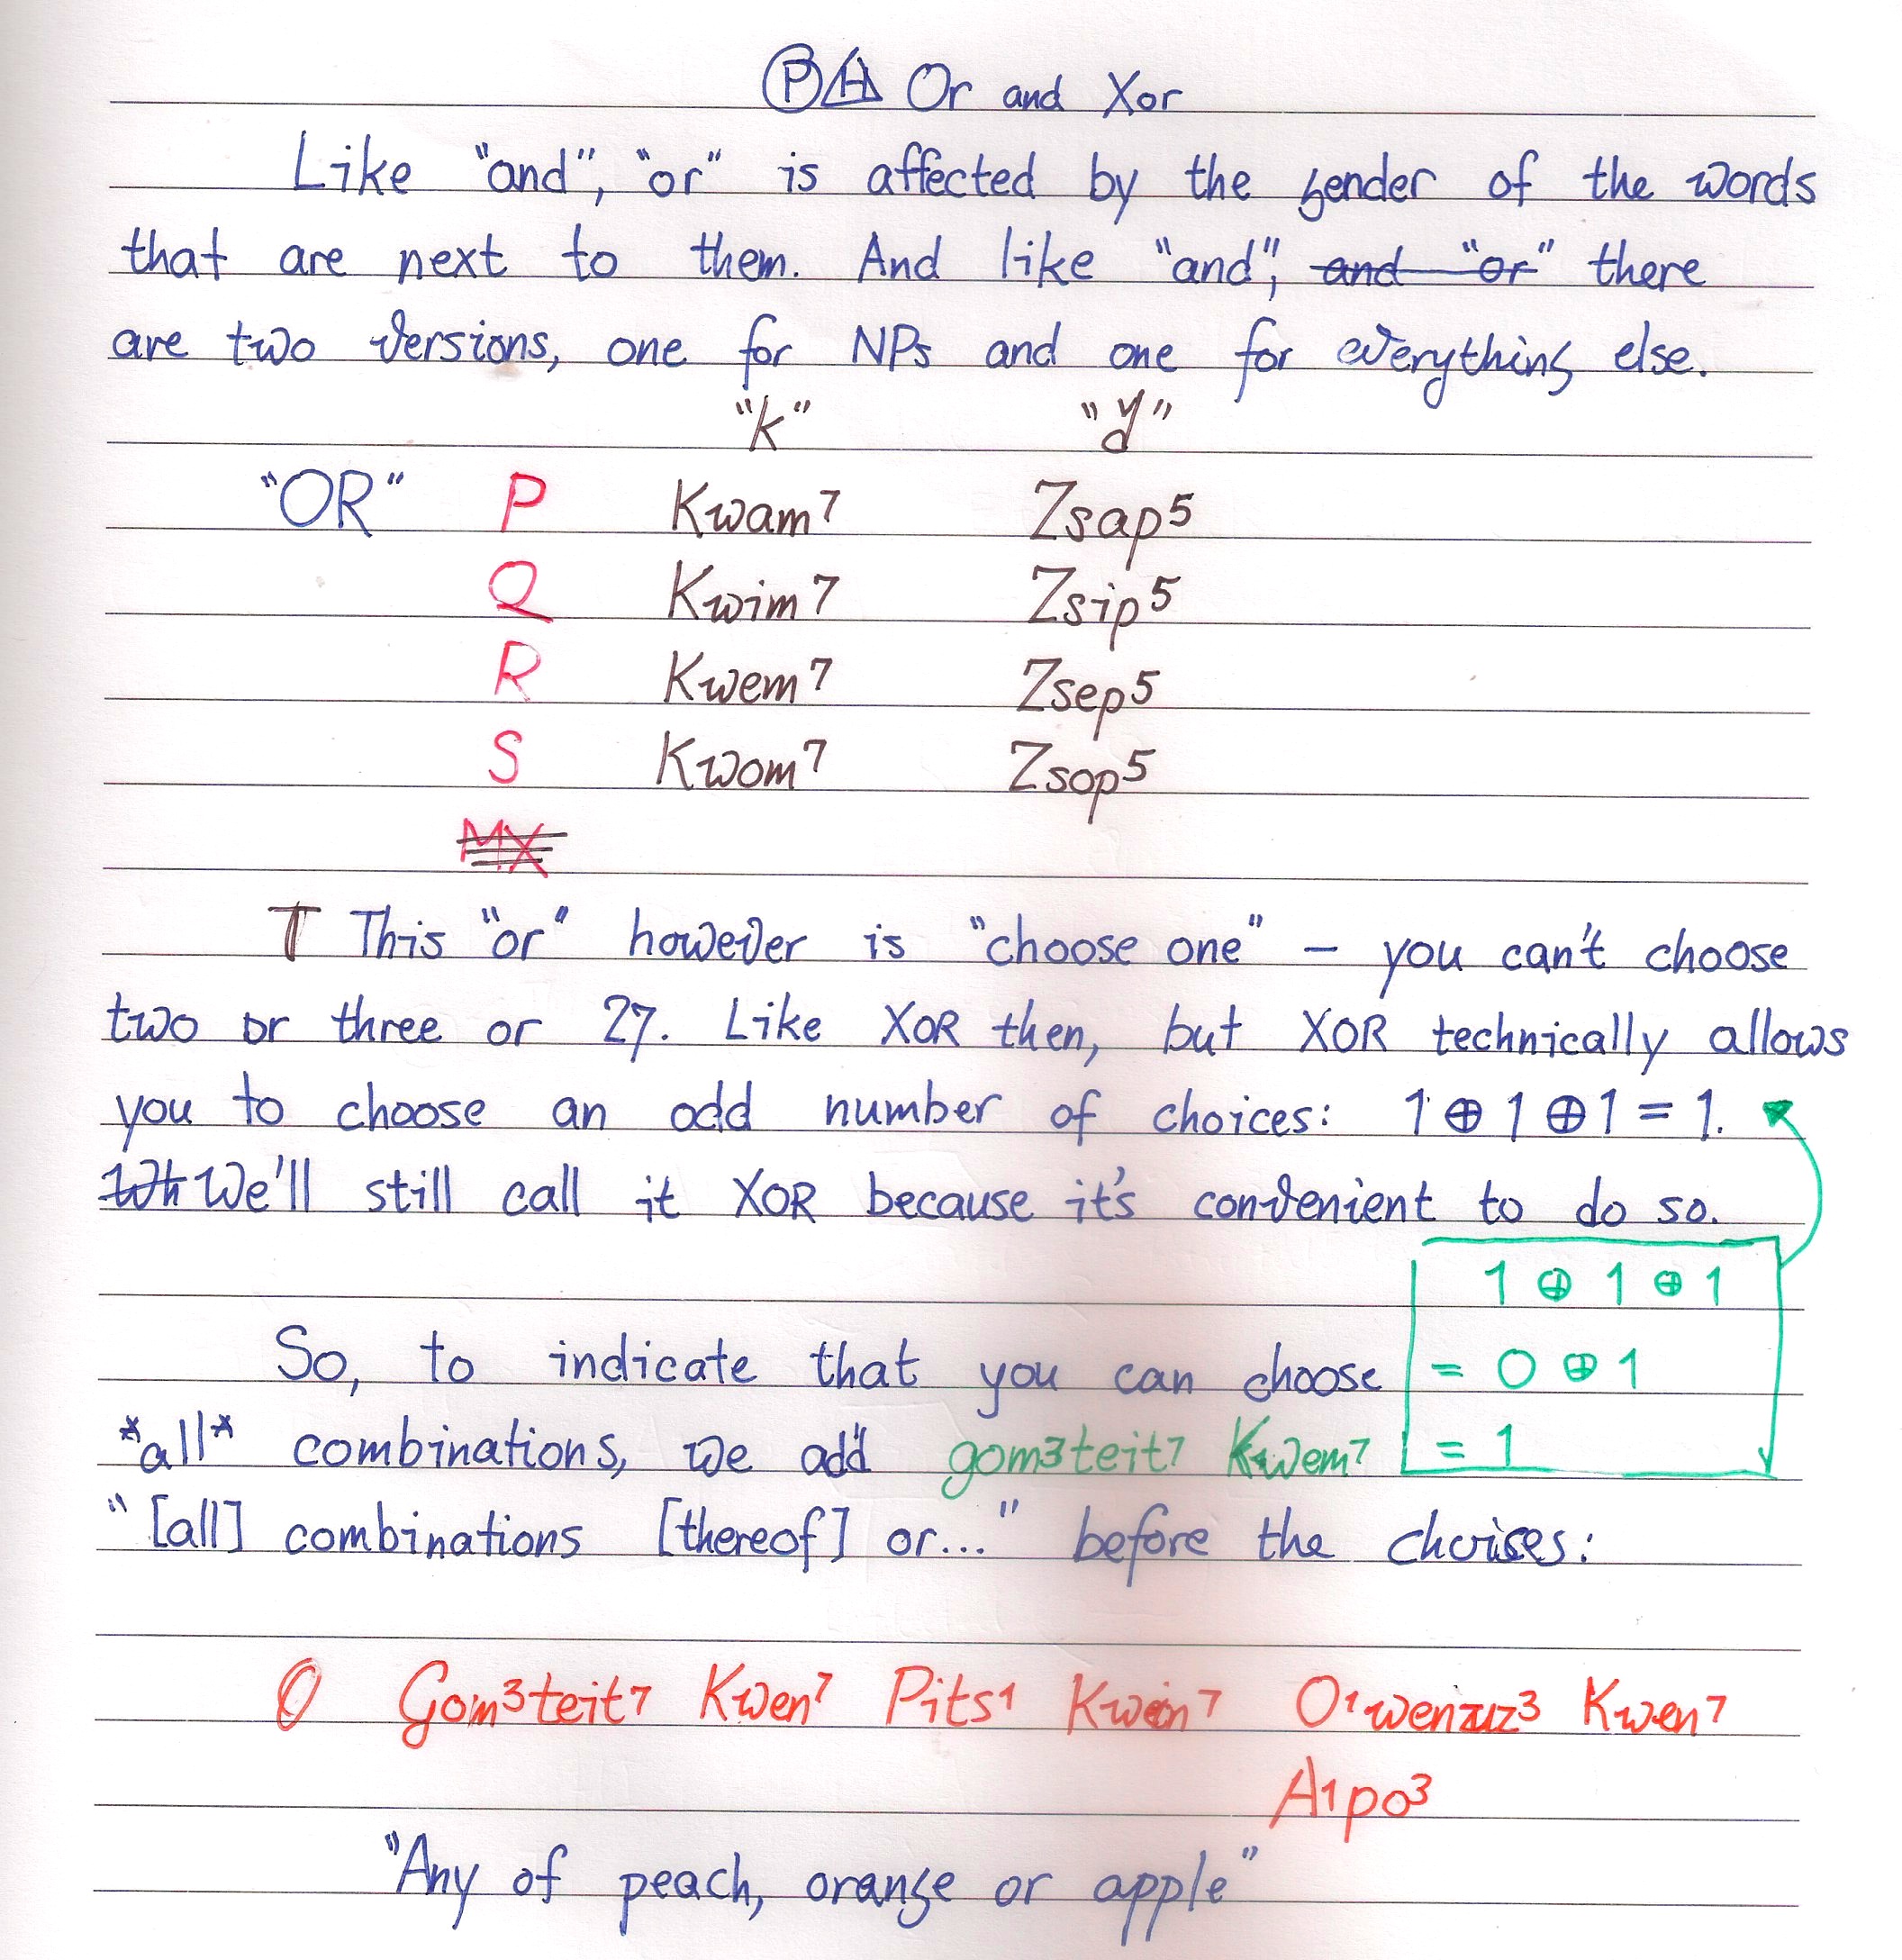 PA Or and Xor
Like "and", "or" is affected by the gender of the words
that are next to them. And like "and", and "or" there
are two versions, one for NPs and one for everything else.
"k" "ɟ"
"OR" P Kwam7 Zsap5
Q Kwim7 Zsip5
R Kwem7 Zsep5
S Kwom7 Zsop5
MX
T This "or" however is "choose one" – you can't choose
two or three or 27. Like XOR then, but XOR technically allows
you to choose an odd number of choices: 1 ⊕ 1 ⊕ 1 = 1.
Wh We'll still call it XOR because it's convenient to do so.
1 ⊕ 1 ⊕ 1
So, to indicate that you can choose = 0 ⊕ 1
*all* combinations, we add gom3teit7 Kwem7 = 1
"[all] combinations [thereof] or..." before the choices:
O Gom3teit7 Kwen7 Pits1 Kwen7 O1wenzuz3 Kwen7
A1po3
"Any of peach, orange or apple"